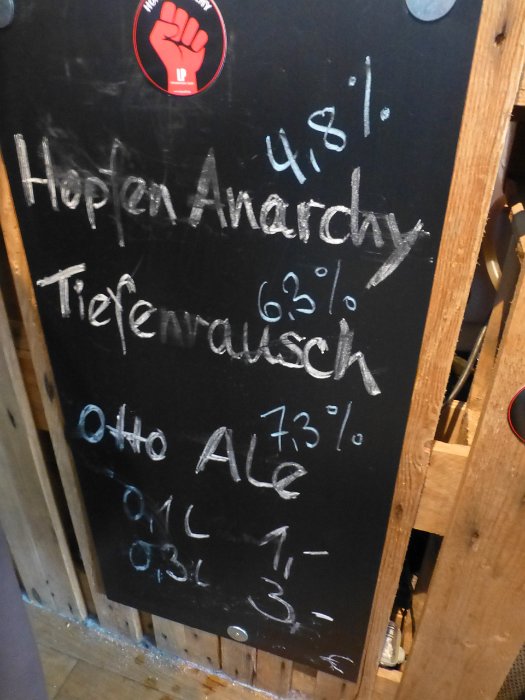 4,8%
Hopfen Anarchy
6,3%
Tiefenrausch
7,3%
Otto Ale
0,1L 1,-
0,3L 3,-